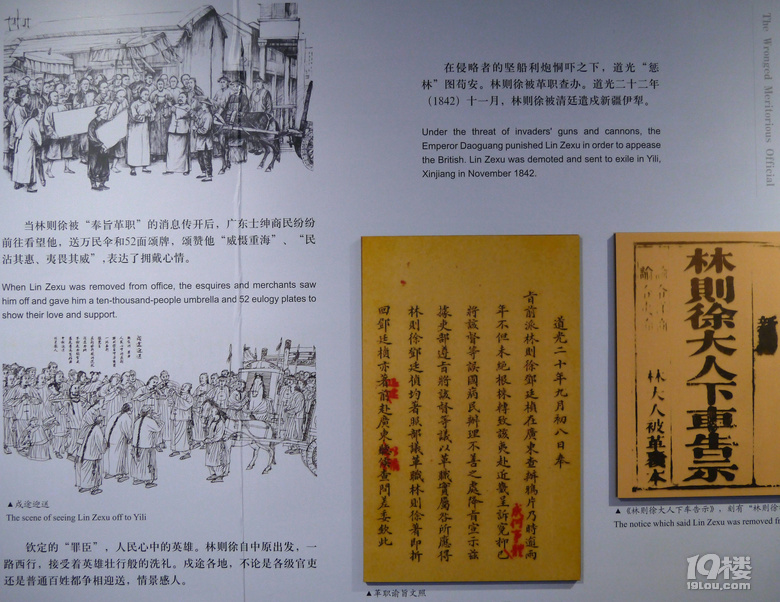 The Wronged Meritorious Official
在侵略者的坚船利炮恫吓之下，道光“惩
林”图苟安。林则徐被革职查办。道光二十二年
（1842）十一月，林则徐被清廷遣戍新疆伊犁。
Under the threat of invaders' guns and cannons, the
Emperor Daoguang punished Lin Zexu in order to appease
the British. Lin Zexu was demoted and sent to exile in Yili,
Xinjiang in November 1842.
当林则徐被“奉旨革职”的消息传开后，广东士绅商民纷纷
前往看望他，送万民伞和52面颂牌，颂赞他“威慑重海”、“民
沾其惠、夷畏其威”，表达了拥戴心情。
When Lin Zexu was removed from office, the esquires and merchants saw
him off and gave him a ten-thousand-people umbrella and 52 eulogy plates to
show their love and support.
▲戍途迎送
The scene of seeing Lin Zexu off to Yili
钦定的“罪臣”，人民心中的英雄。林则徐自中原出发，一
路西行，接受着英雄壮行般的洗礼。戍途各地，不论是各级官吏
还是普通百姓都争相迎送，情景感人。
道光二十年九月初八日奉
旨前派林则徐鄧廷楨在廣東查辦鴉片乃時逾兩
年不但未絕根株轉致該夷赴近畿呈訴冤抑
將該督等誤國病民辦理不善之處降旨宣示茲
據吏部遵旨將該督等議以革職實屬咎所應得
林則徐鄧廷楨均著照部議革職林則徐著即折
回
鄧廷楨亦著前赴廣東
查問差委欽此
▲革职谕旨文照
新
林則徐大人下車告示
林大人被革
本
▲《林則徐大人下车告示》，刻有“林则徐
The notice which said Lin Zexu was removed f
19楼
19lou.com